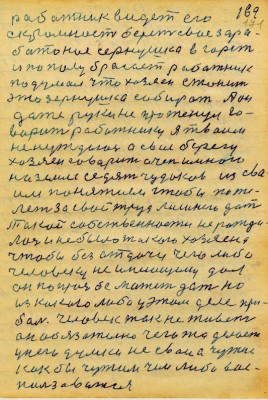 169
171
работник видет его
скромность берет свое зара-
ботоное зернушка в горст
и по полу бросает работник
подумал что хозяен станит
это зернушка собират А он
даже руки не протенул го-
варит работнику я твоим
ненуждаюс а свое берегу
хозяен говорит очен много
на земле седят чудаков из сва-
им понятием чтобы поже-
лет за свой труд лишнего дат
такой собственности не рожда-
лос и небыло такого хозяена
чтобы без отдачи чего либо
человеку не имеющему дал
он по праз не может дат но
из какого либо у этом деле при-
бал. человек так не живет
он обязателно чего то делает
у него думка не своиа чужа
как бы чужим чем либо вос-
ползоватся